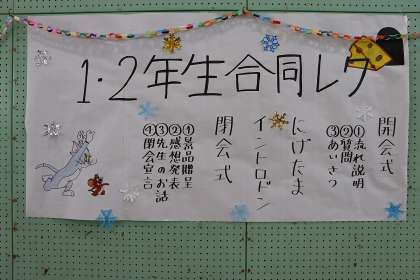 1・2年生合同レク
開会式
①流れ説明
②質問
③あいさつ
にげたま
イントロドン
閉会式
①景品贈呈
②感想発表
③先生のお話
④閉会宣言